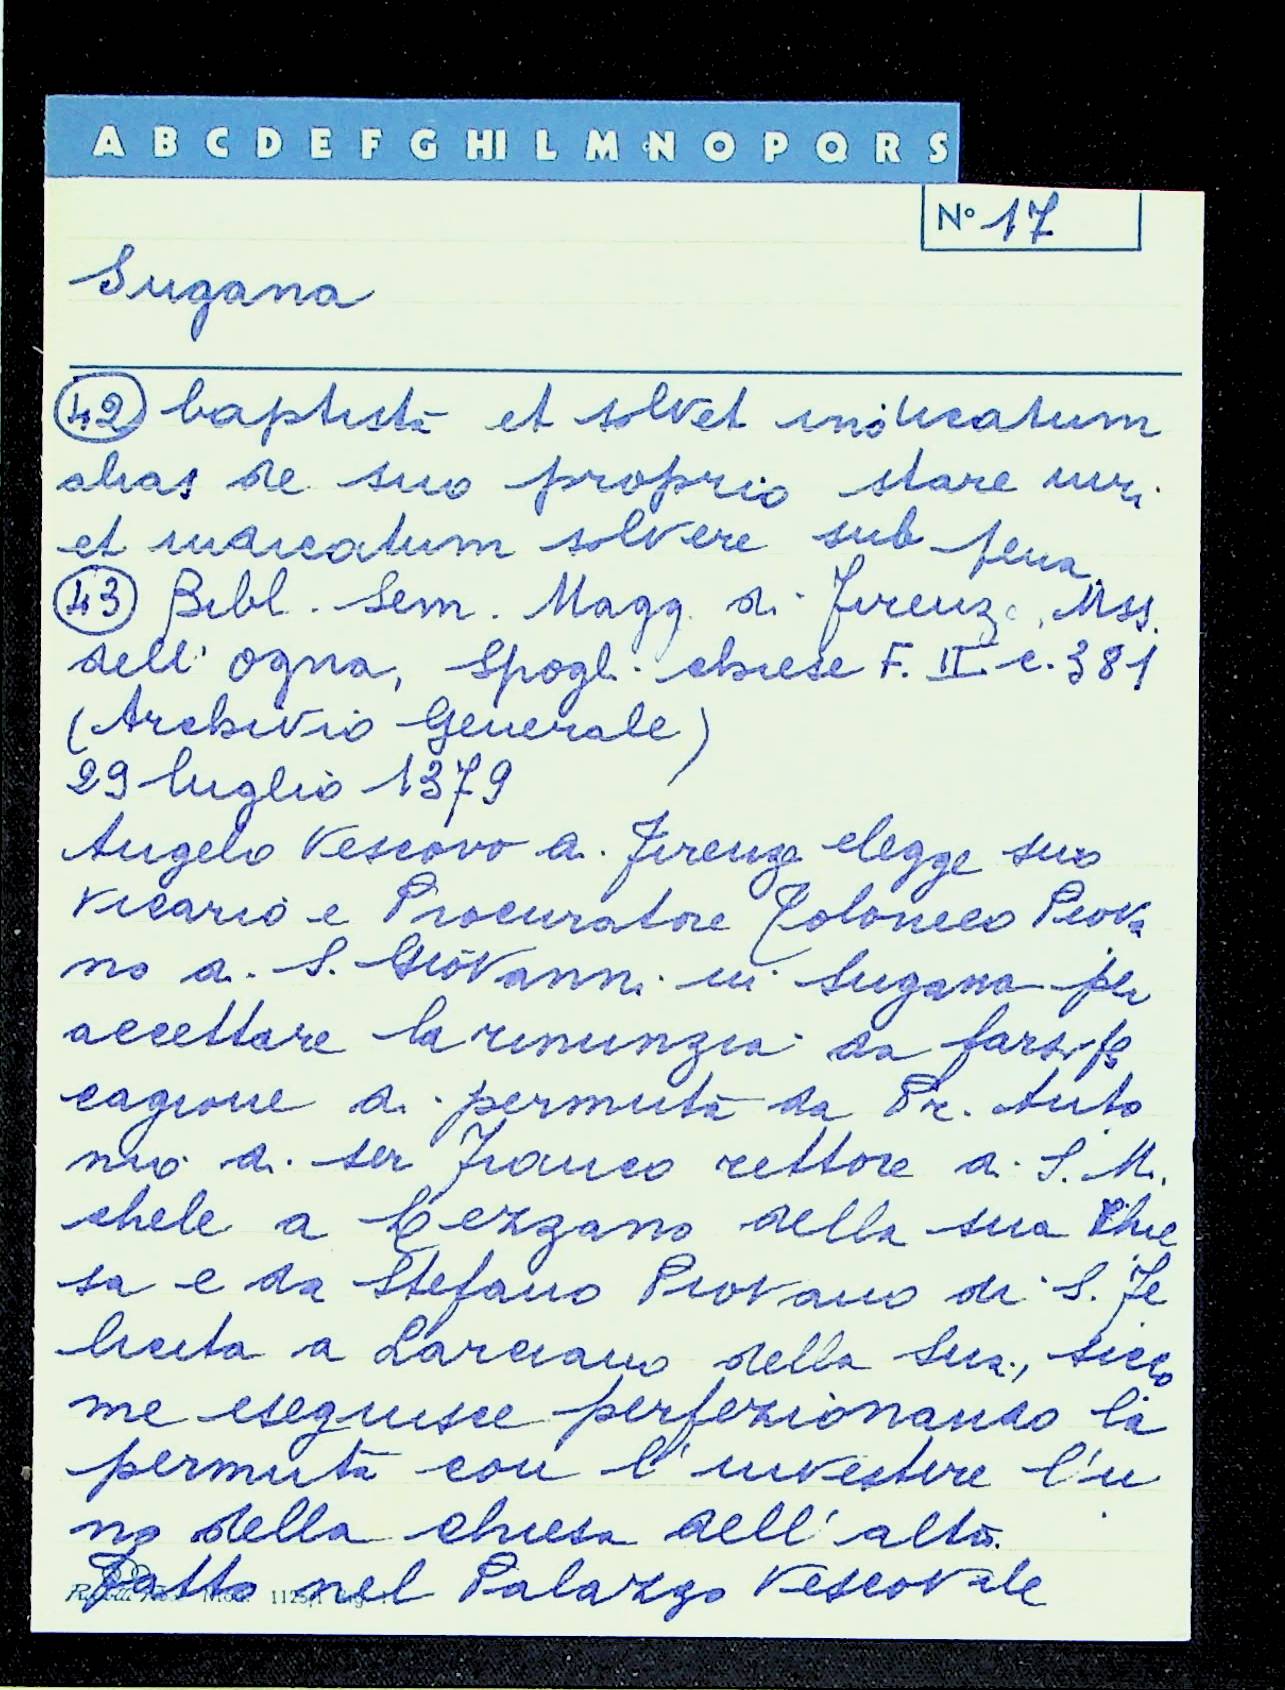 A B C D E F G HI L M N O P Q R S
N° 17
Sugana
42 baptista et solvet indicatum
alias de suo proprio stare iuri
et iudicatum solvere sub pena.
43 Bibl. Sem. Magg. di Firenze, Mss.
dell' Ogna, Spogl. chiese F. II c. 381
(Archivio Generale)
29 luglio 1379
Angelo Vescovo di Firenze elegge suo
Vicario e Procuratore Piova
no di S. Giovanni in Sugana per
accettare la rinunzia da farsi p
cagione di permuta da Pr. Anto
nio di ser Franco rettore di S. Mi
chele a della sua Chie
sa e da Stefano Piovano di S. Fe
licita a Larciano della sua, sicco
me eseguisce perfezionando la
permuta con l'investire l'u
no della chiesa dell'altro.
Fatto nel Palazzo Vescovile